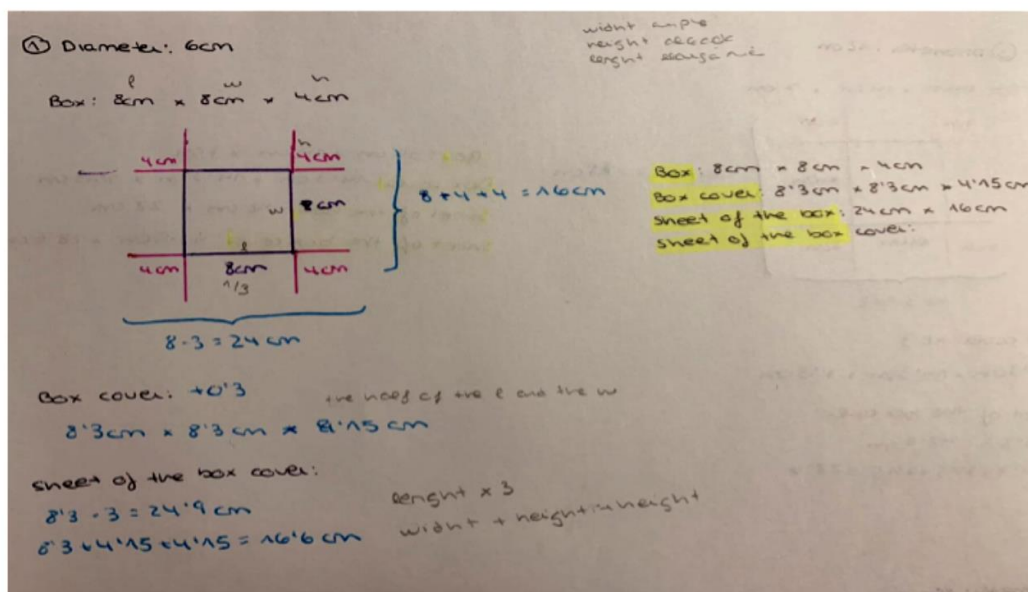 ① Diameter: 6cm
widht ample
height
lenght
l w h
Box: 8cm × 8cm × 4cm
4cm h 4cm
w 8cm
l
4cm 8cm 4cm
1/3
8 + 4 + 4 = 16cm
8 · 3 = 24cm
Box: 8cm × 8cm × 4cm
Box cover: 8'3cm × 8'3cm × 4'15cm
sheet of the box: 24cm × 16cm
sheet of the box cover:
Box cover: +0'3
the half of the l and the w
8'3cm × 8'3cm × 4'15cm
sheet of the box cover:
8'3 · 3 = 24'9cm
lenght × 3
8'3 + 4'15 + 4'15 = 16'6cm
widht + height + height